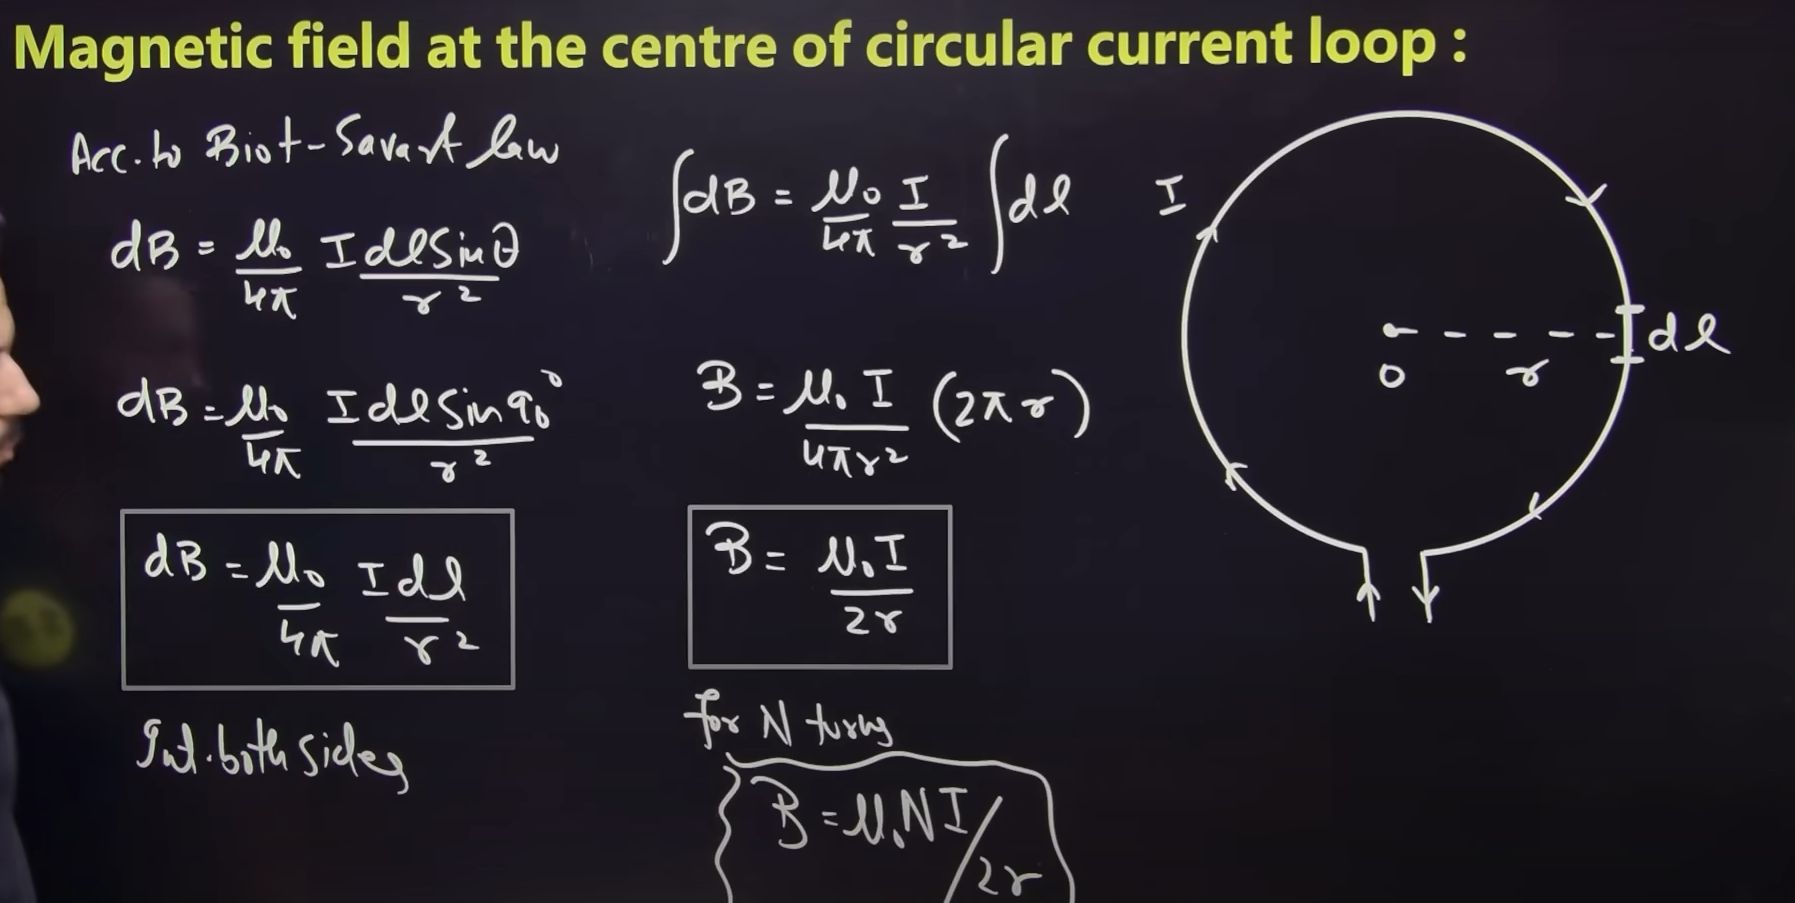 Magnetic field at the centre of circular current loop :
Acc. to Biot-Savart law
dB = μ₀/4π I dl Sin θ/r²
dB = μ₀/4π I dl Sin 90°/r²
dB = μ₀/4π I dl/r²
Int. both sides
∫dB = μ₀/4π I/r² ∫dl
B = μ₀ I/4πr² (2πr)
B = μ₀ I/2r
for N turns
B = μ₀NI/2r
I
dl
O
r